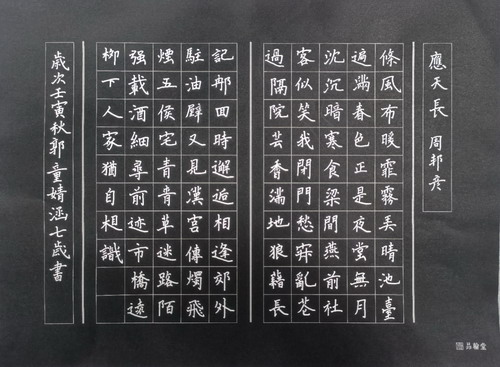 應天長 周邦彥
條風布暖霏霧美晴池臺
遍滿春色正是夜堂無月
沈沉暗寒食梁間燕前社
客似笑我閉門愁寂亂花
過隔院芸香滿地狼藉長
記那回時邂逅相逢郊外
駐油壁又見漢宮傳燭飛
煙五侯宅青青草迷路陌
强載酒細尋前迹市橋遠
柳下人家猶自相識
歲次壬寅秋郭童婧涵七歲書
品翰堂